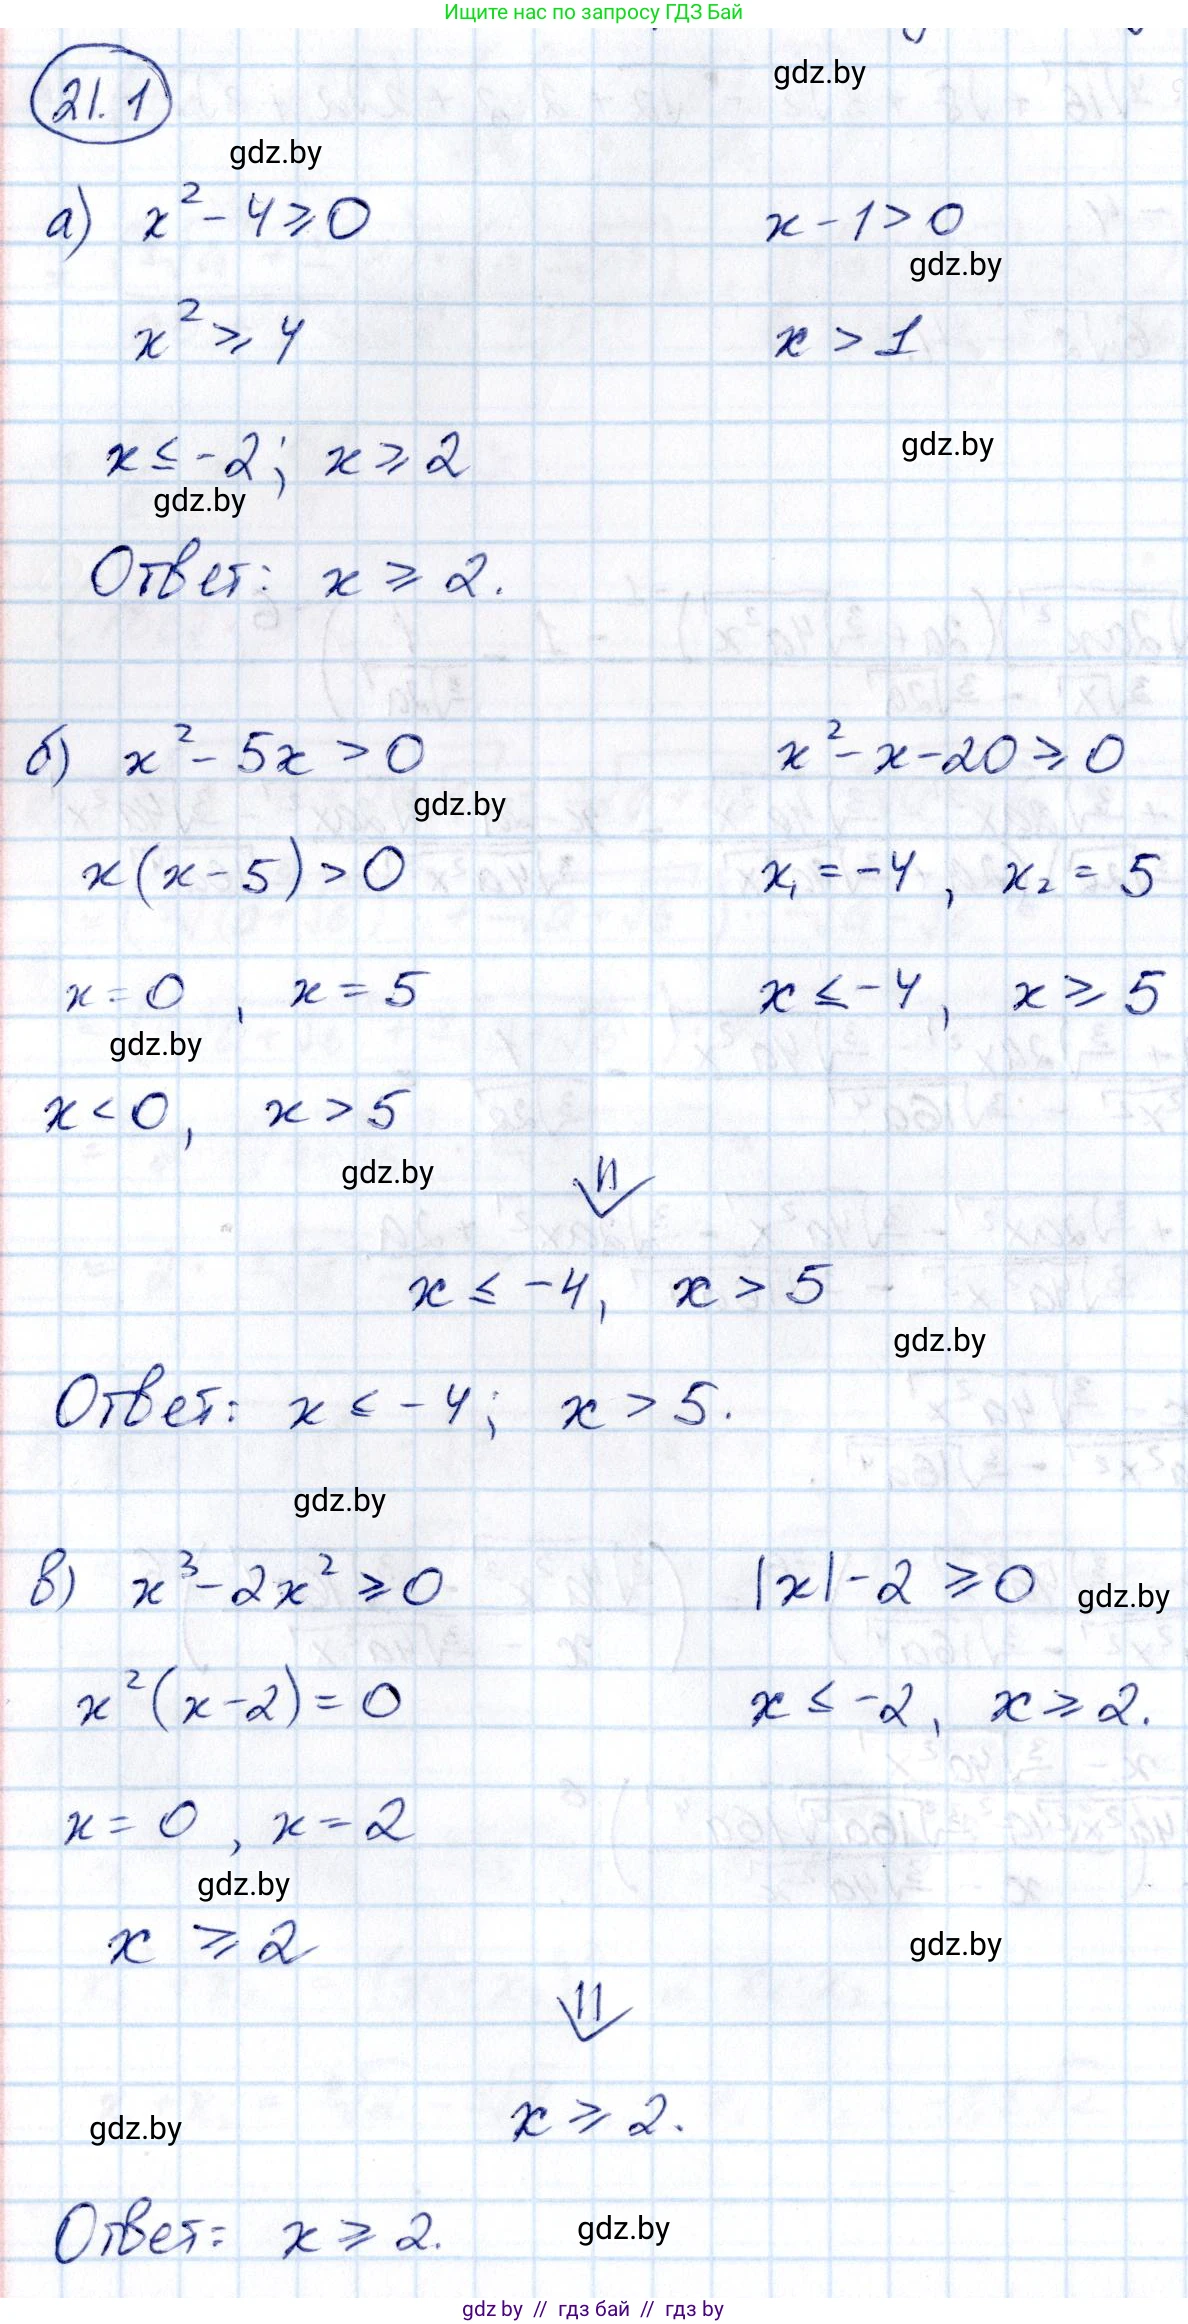 Ищите нас по запросу ГДЗ Бай
gdz.by
21.1
gdz.by
а) x² - 4 ⩾ 0    x - 1 > 0
gdz.by
x² ⩾ 4    x > 1
x ≤ -2; x ⩾ 2    gdz.by
gdz.by
Ответ: x ⩾ 2.
б) x² - 5x > 0    x² - x - 20 ⩾ 0
gdz.by
x(x - 5) > 0    x₁ = -4, x₂ = 5
x = 0, x = 5    x ≤ -4, x ⩾ 5
gdz.by
x < 0, x > 5
gdz.by
⇓
x ≤ -4, x > 5
gdz.by
Ответ: x ≤ -4; x > 5.
gdz.by
в) x³ - 2x² ⩾ 0    |x| - 2 ⩾ 0    gdz.by
x²(x - 2) = 0    x ≤ -2, x ⩾ 2.
x = 0, x = 2
gdz.by
x ⩾ 2    gdz.by
⇓
gdz.by    x ⩾ 2.
Ответ: x ⩾ 2.    gdz.by
gdz by // гдз бай // gdz by